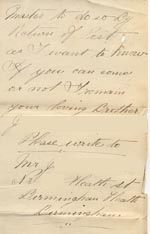 to do so by
Return of Post
as I want to know
if you can come
or not I remain
your loving Brother
J
Please write to
Mr J
Heath St
Birmingham Heath
Birmingham